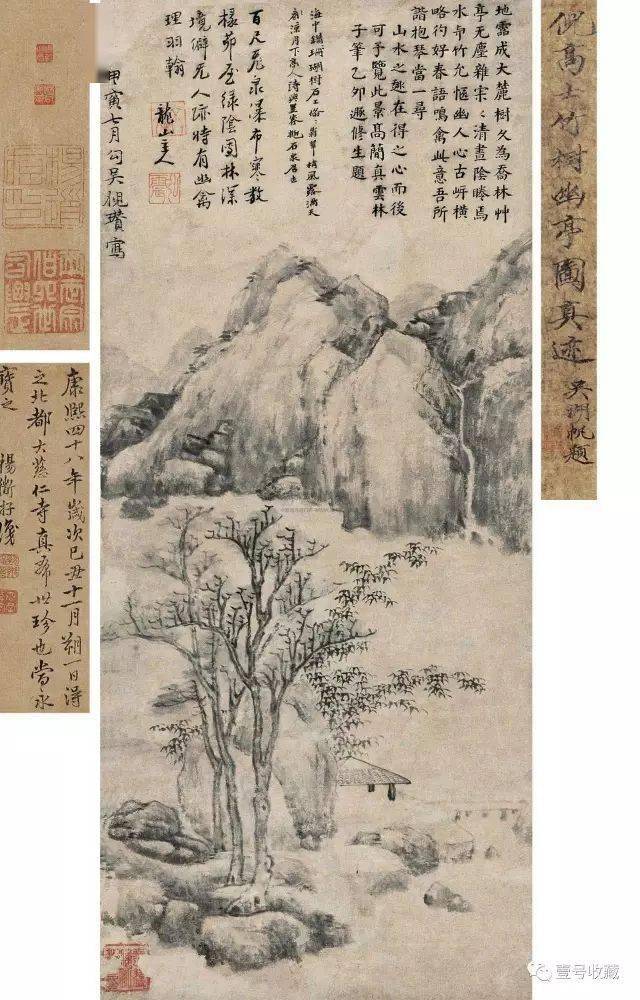 倪高士竹樹幽亭圖真迹
吳湖帆題
地靈成大麓樹久為喬林艸
亭无塵雜清晝陰睠焉
水与竹允愜幽人心古㟁橫
略彴好春語鳴禽此意吾所
諧抱琴當一尋
山水之趣在得之心而後
可予覽此景髙簡真雲林
子筆乙夘遯脩生題
海中鐵珊瑚樹石上翡翠梢風露滿天
涼月下高人詩興
百尺飛泉瀑布寒數
椽茆屋綠陰團林深
境僻无人跡時有幽禽
理羽翰
龍山主人
甲寅七月勾吳倪瓚寫
康熙四十八年歲次己丑十一月朔一日得
之北都大慈仁寺真希世珍也當永
寶之
楊
壹号收藏